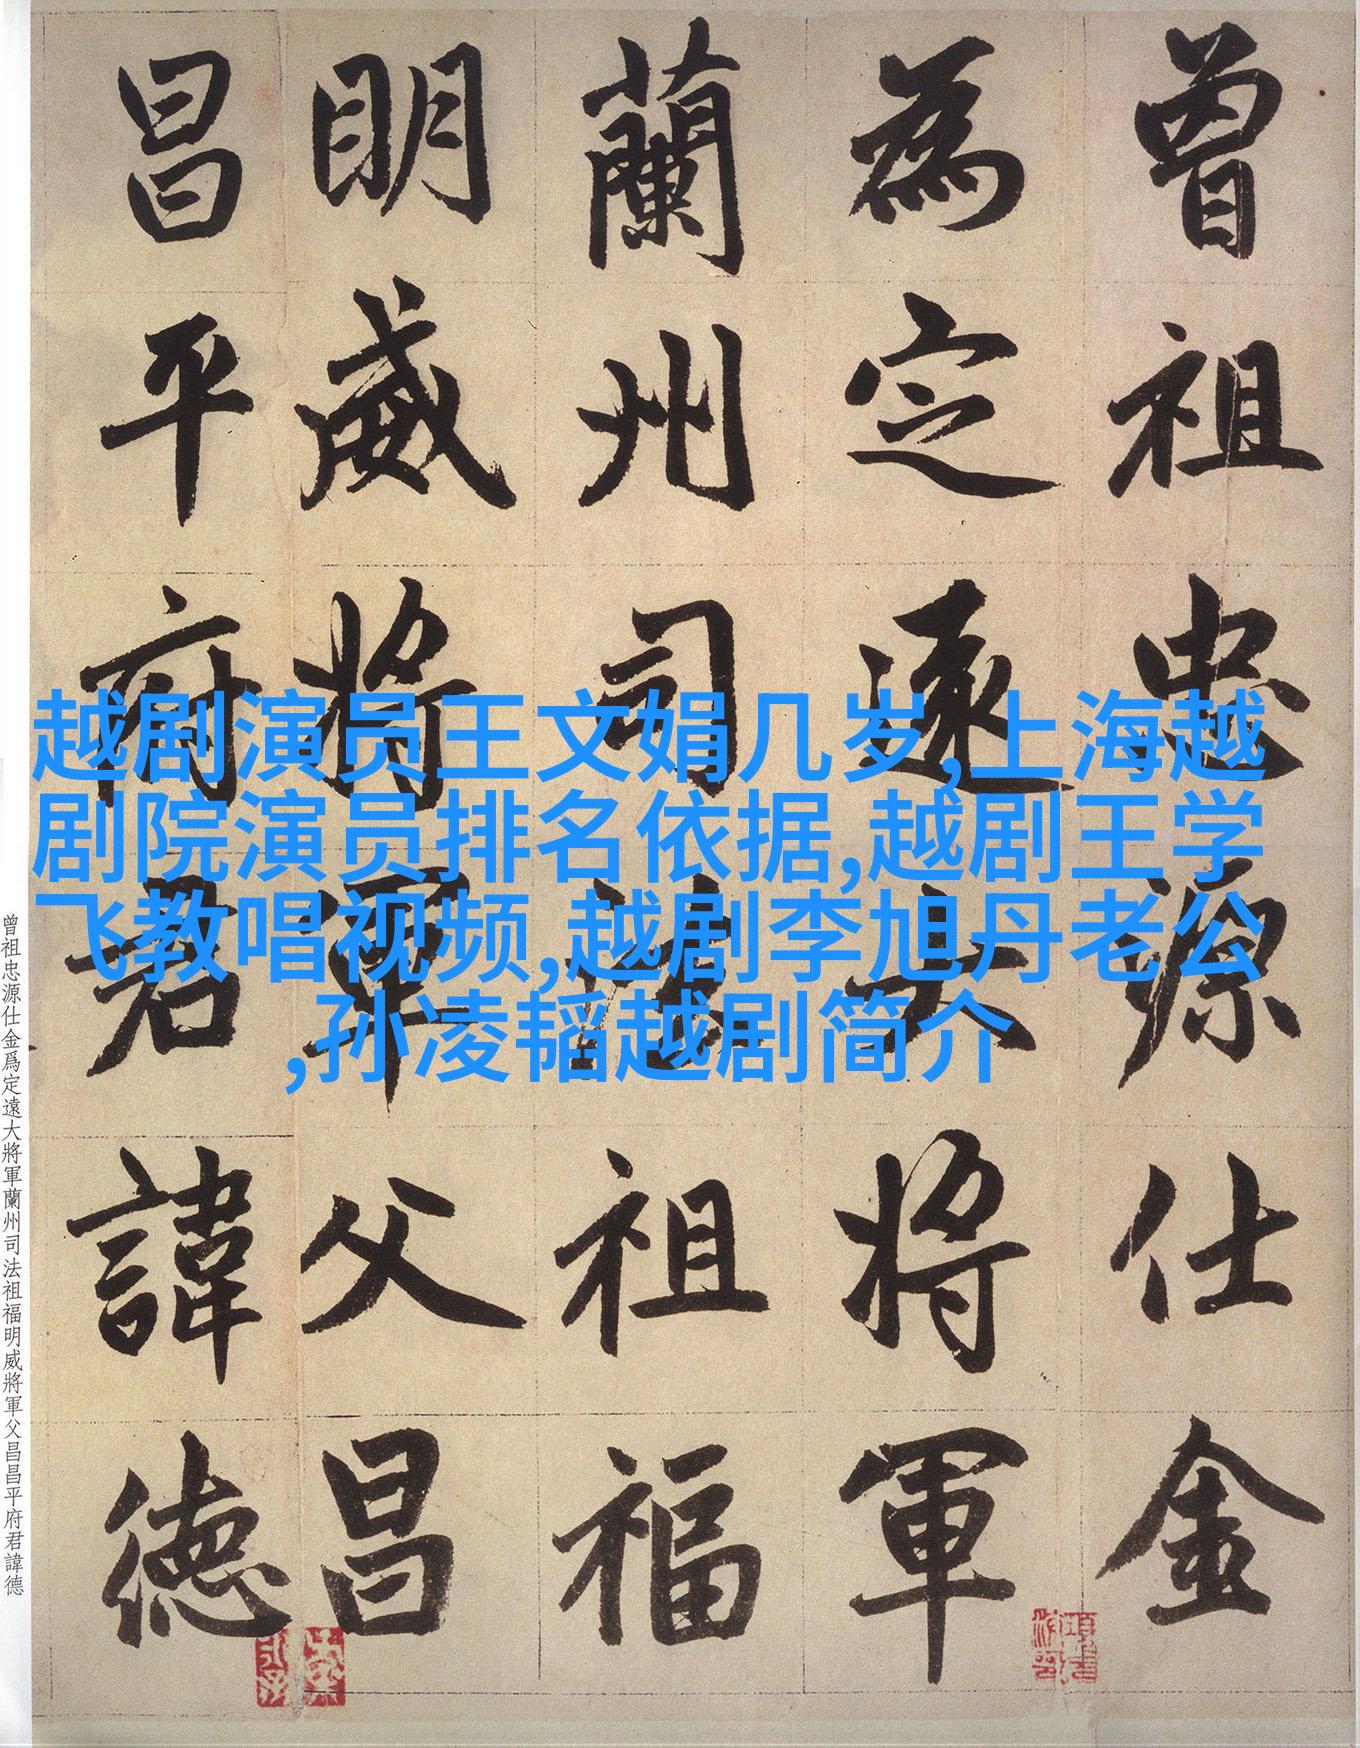 曾祖忠源仕金
為定遠大將軍
蘭州司法祖福
明威將軍父昌
昌平府君諱德
越剧演员王文娟几岁,上海越
剧院演员排名依据,越剧王学
飞教唱视频,越剧李旭丹老公
,孙凌韬越剧简介
曾祖忠源仕金爲定遠大將軍蘭州司法祖福明威將軍父昌昌平府君諱德